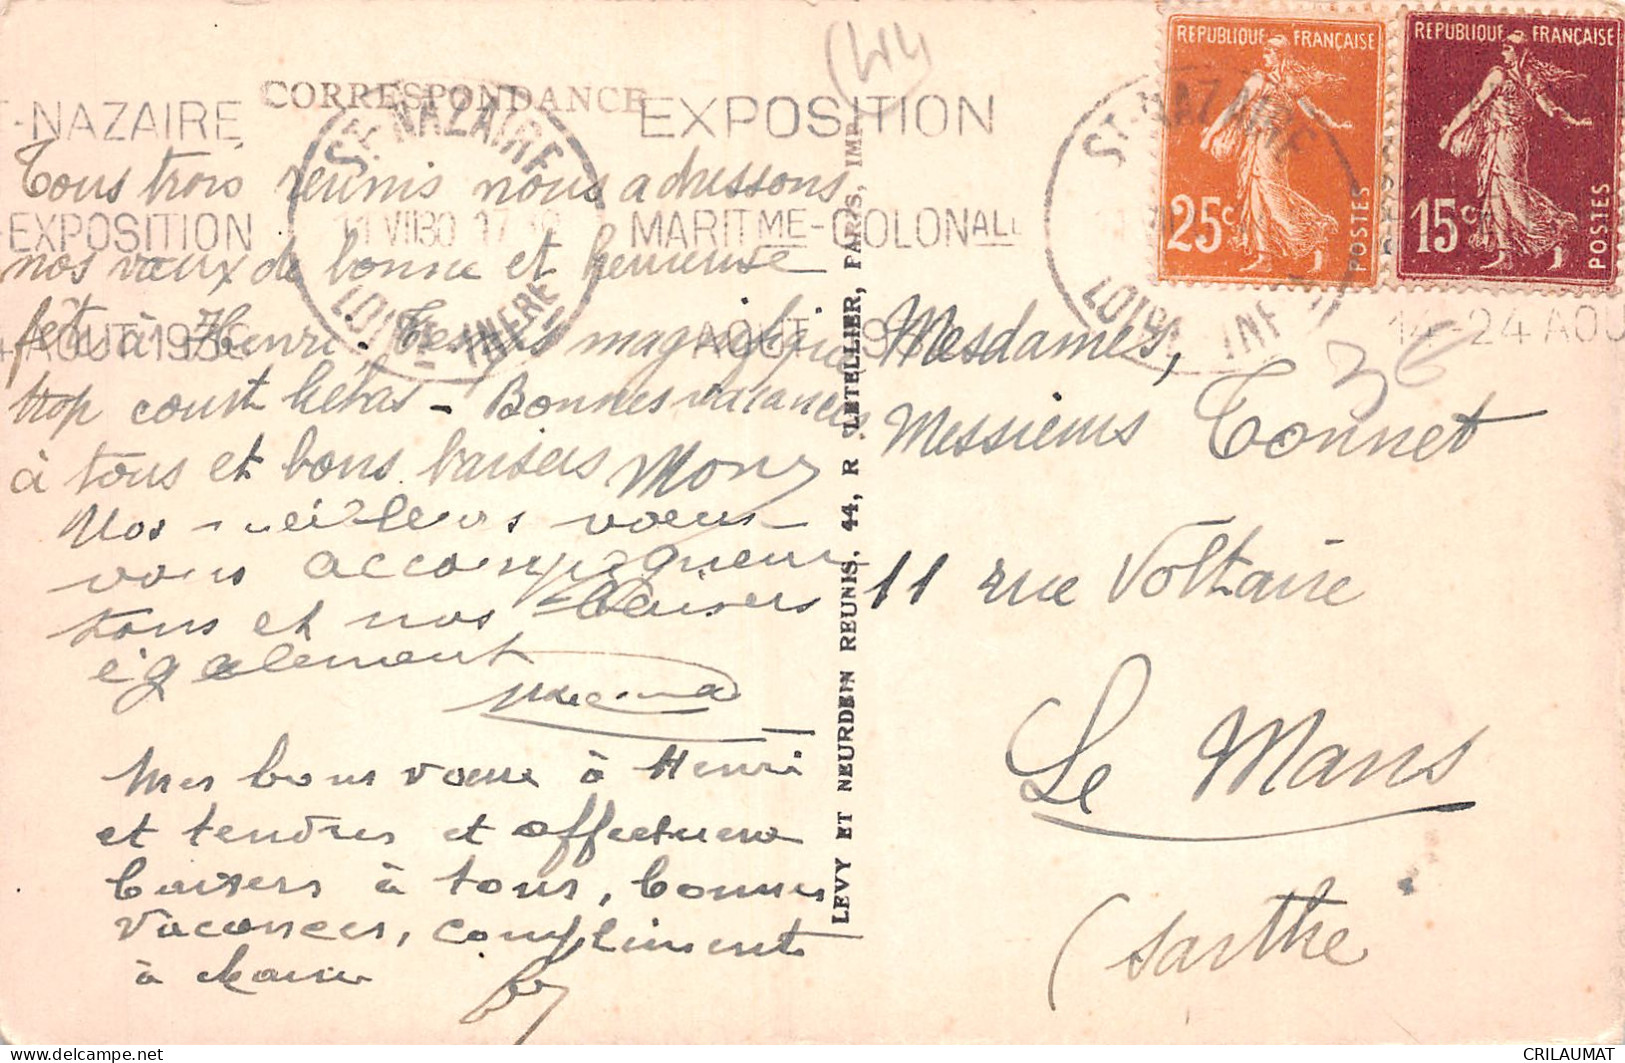 CORRESPONDANCE
T-NAZAIRE
EXPOSITION
4 AOUT 1930
ST-NAZAIRE
11 VII 30 17
LOIRE-INFRE
EXPOSITION
MARITME-COLONALE
AOUT 193
ST-NAZAIRE
LOIRE-INF
14-24 AOU
(44)
36
REPUBLIQUE FRANÇAISE
25c
POSTES
REPUBLIQUE FRANÇAISE
15c
POSTES
Tous trois réunis nous adressons
nos vœux de bonne et heureuse
fête à Henri. Temps magnifique
trop court hélas - Bonnes vacances
à tous et bons baisers Mony
Nos meilleurs vœux
vous accompagnent
tous et nos baisers
également
Mes bons vœux à Henri
et tendres et affectueux
baisers à tous, bonnes
vacances, compliments
à
LEVY ET NEURDEIN REUNIS. 44, R LETELLIER, PARIS, IMP.
Mesdames,
Messieurs Tonnet
11 rue Voltaire
Le Mans
(Sarthe
delcampe.net
CRILAUMAT